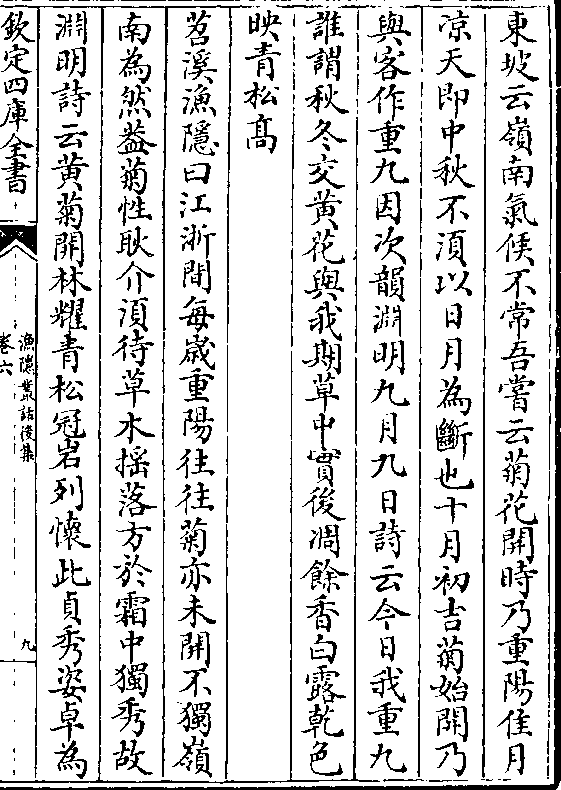 東坡云嶺南氣候不常吾嘗云菊花開時乃重陽佳月
凉天即中秋不湏以日月為斷也十月初吉菊始開乃
與客作重九因次韻淵明九月九日詩云今日我重九
誰謂秋冬交黃花與我期草中實後凋餘香白露乾色
映青松髙
苕溪漁隱曰江浙間每歲重陽往往菊亦未開不獨嶺
南為然葢菊性耿介湏待草木摇落方於霜中獨秀故
淵明詩云黃菊開林耀青松冠岩列懷此貞秀姿卓為
欽定四庫全書
漁隱叢話後集
卷六
九